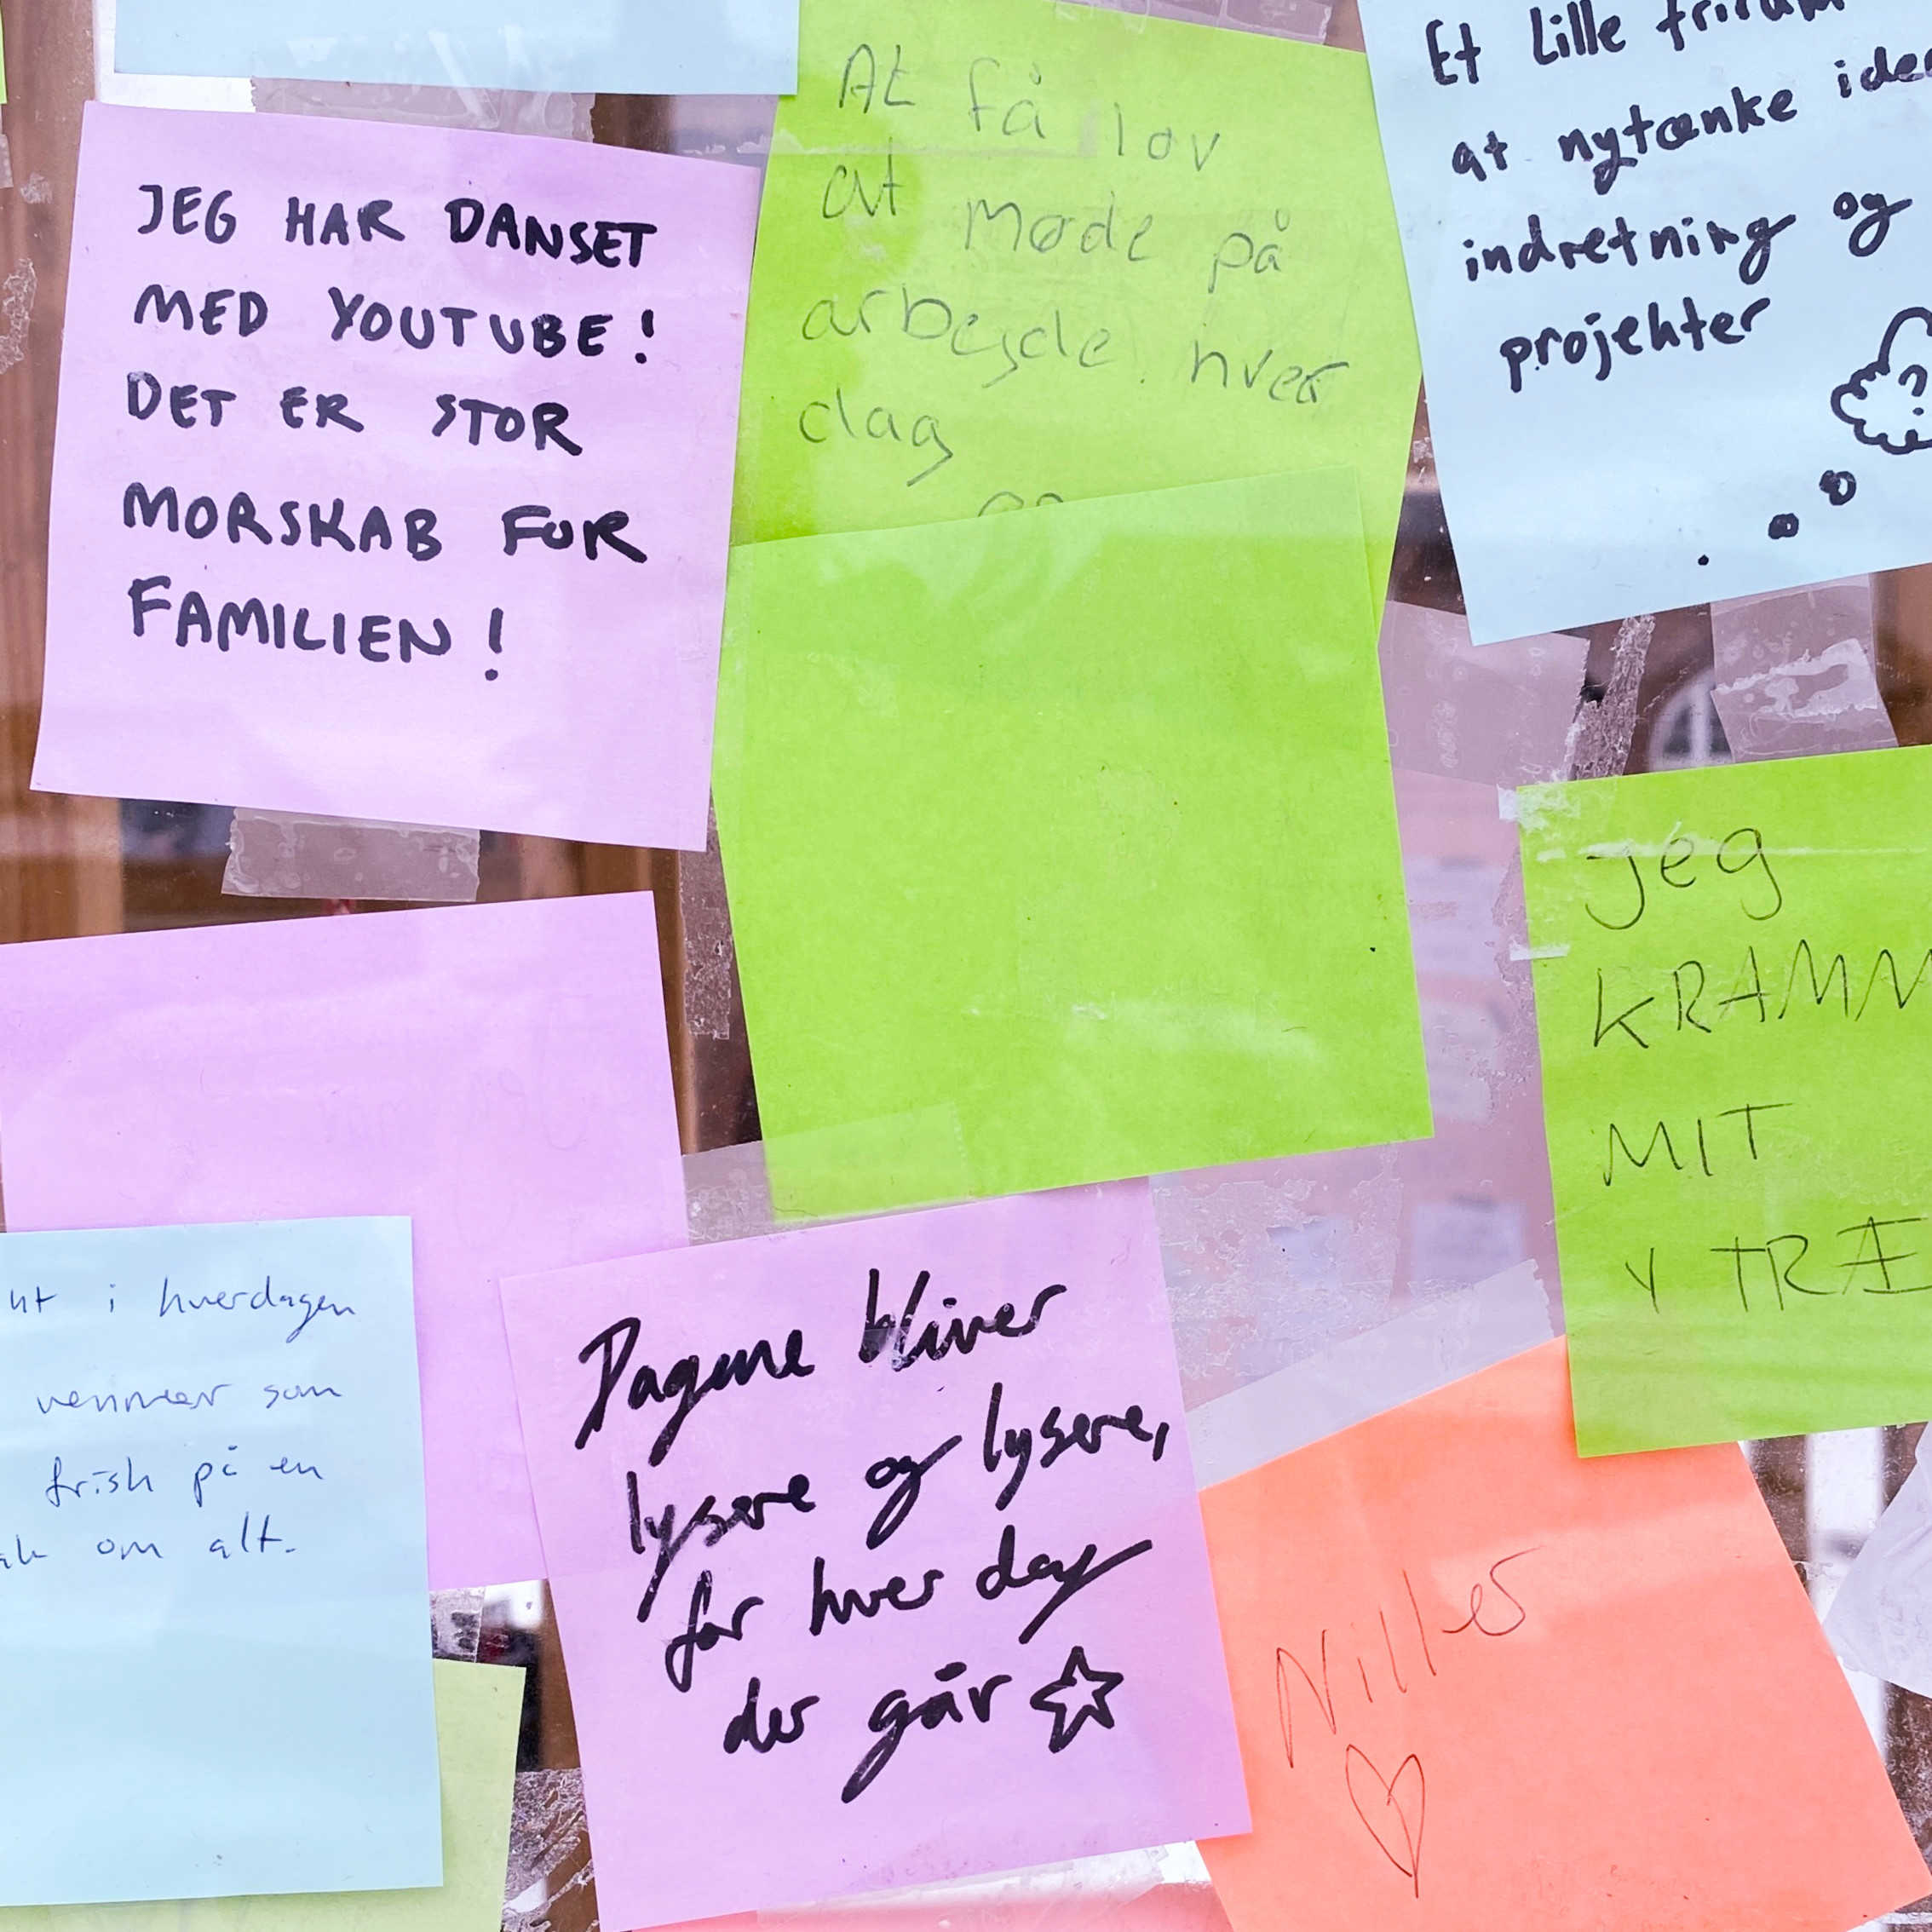 JEG HAR DANSET
MED YOUTUBE!
DET ER STOR
MORSKAB FOR
FAMILIEN!
At få lov
at møde på
arbejde hver
dag
Et lille frirum
at nytænke
indretning og
projekter
?
jeg
KRAMM
MIT
Y TRÆ
i hverdagen
som
frisk på en
om alt.
Dagene bliver
lysere og lysere,
for hver dag
der går
Niller